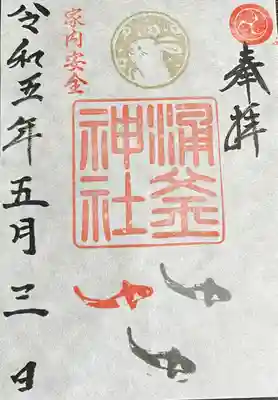 奉拝
涌釜神社
家内安全
令和五年五月三日